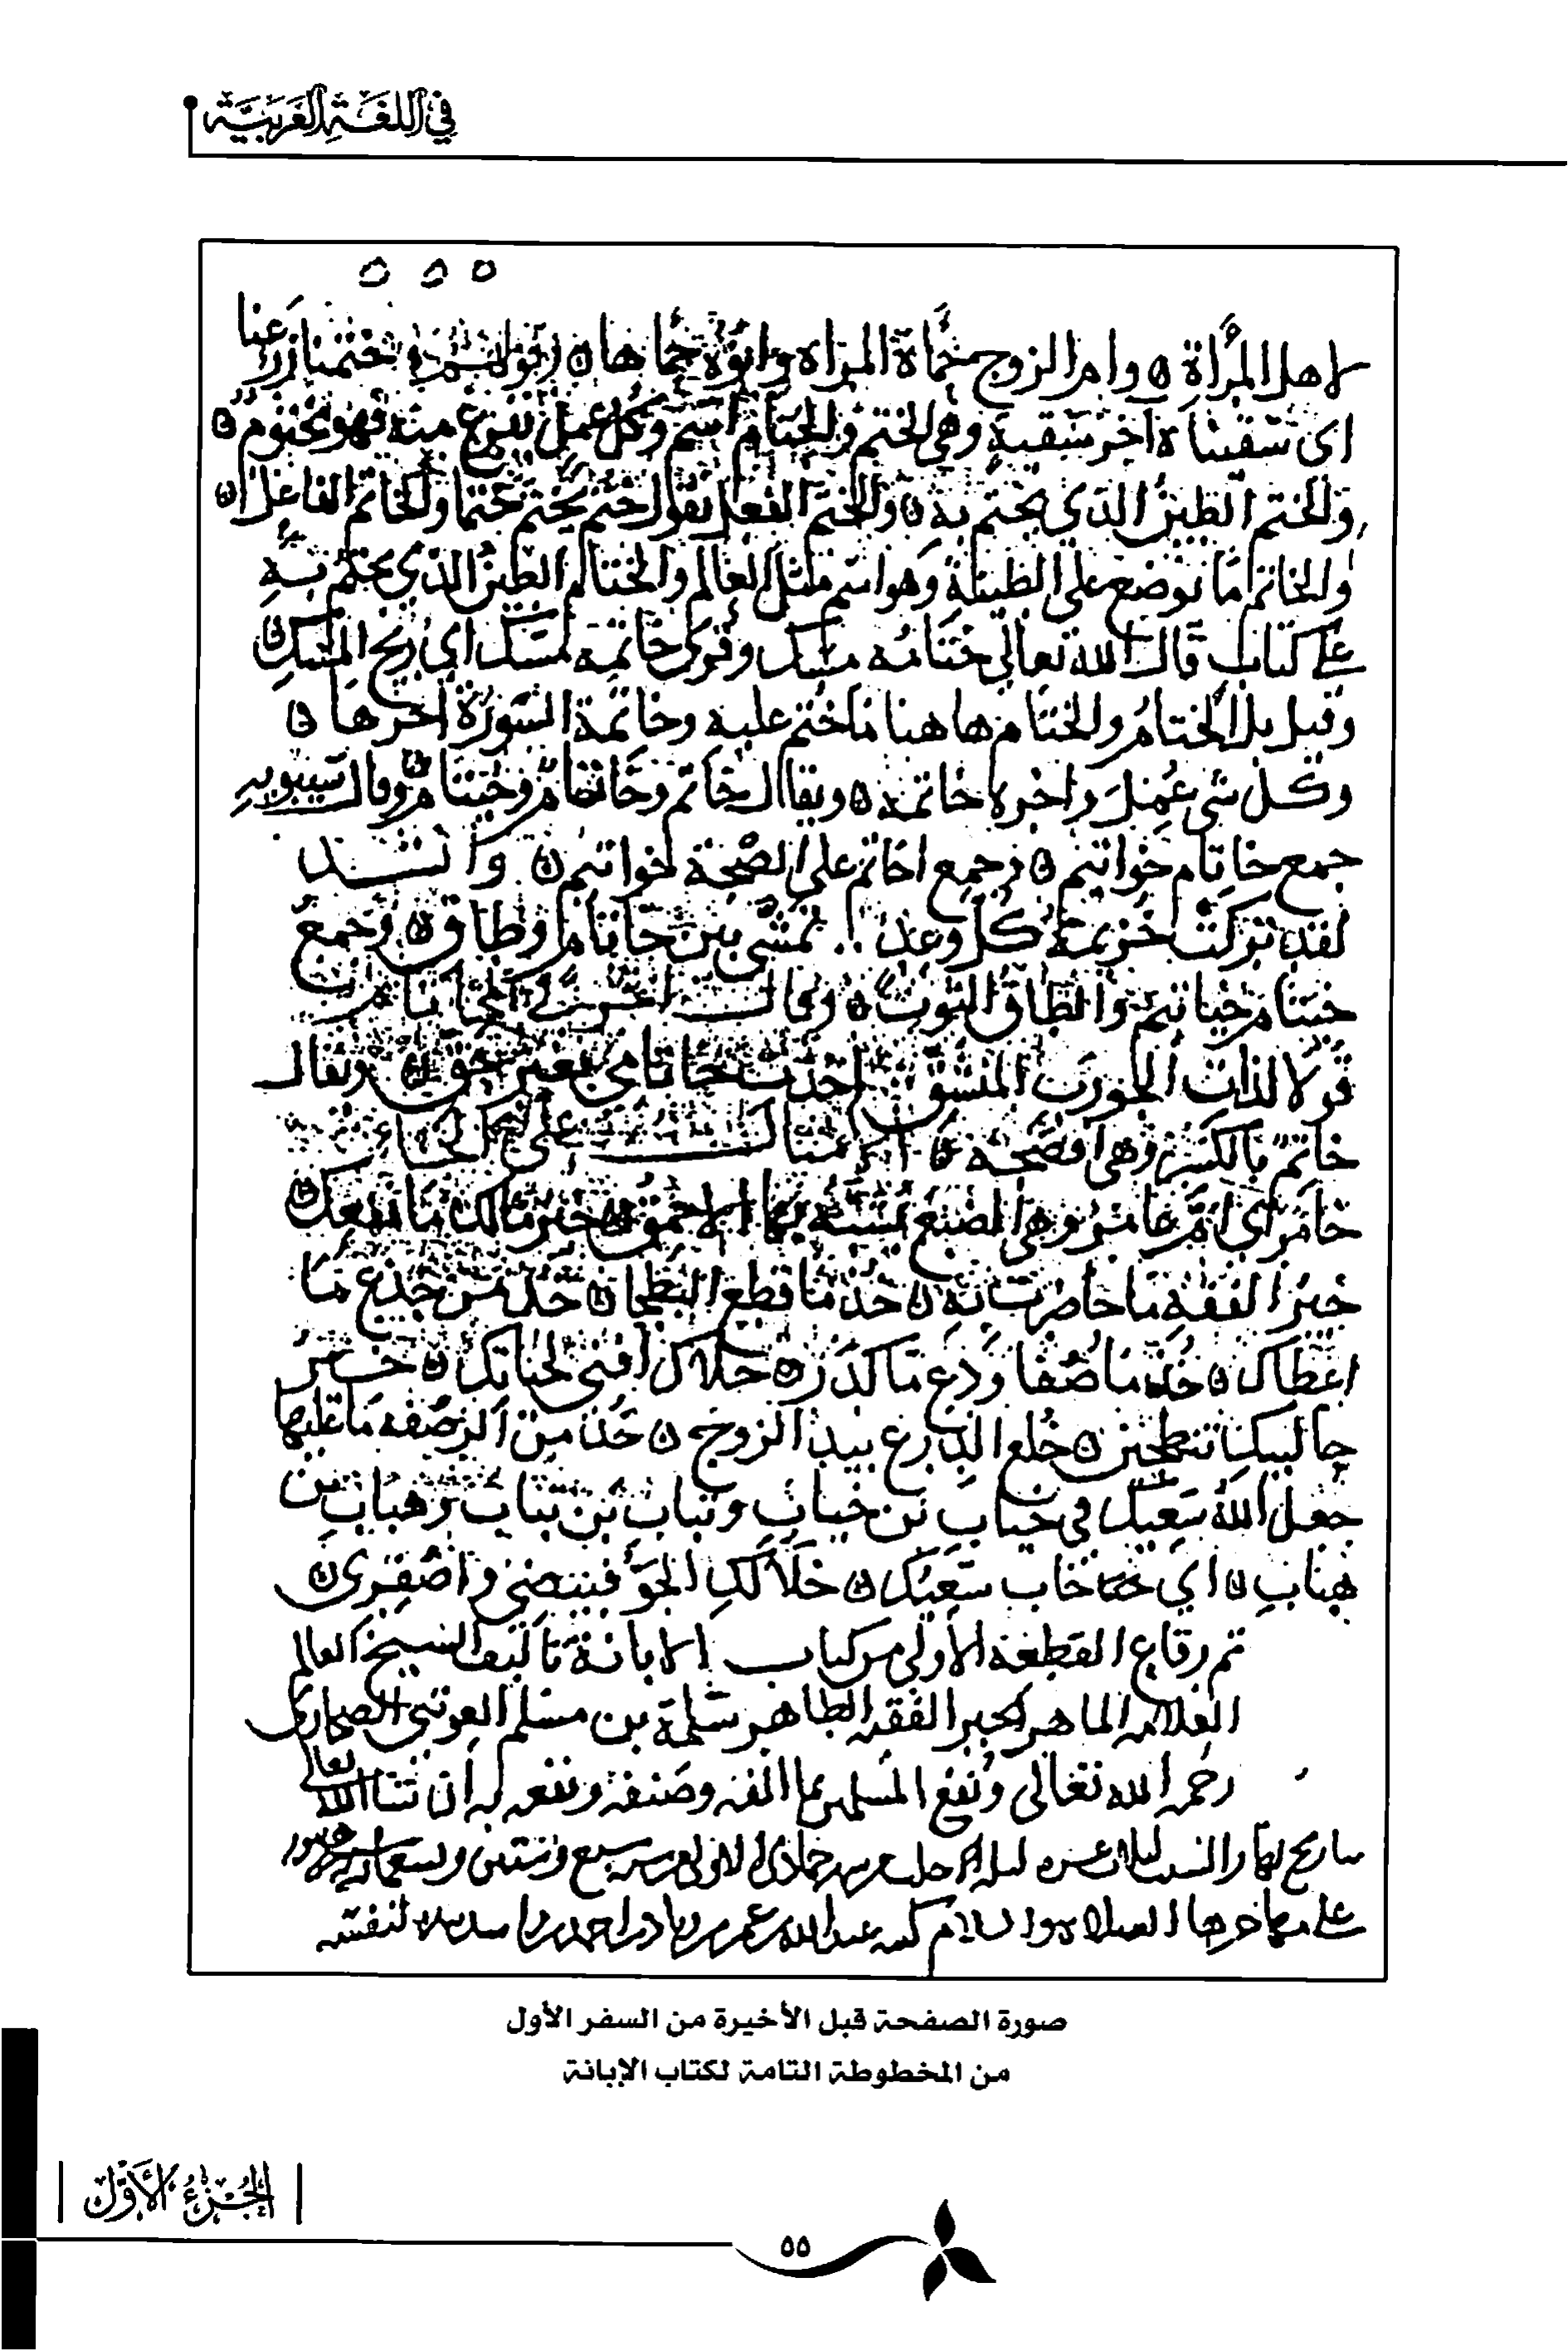 في اللغة العربية
٥٥٥
لاهل المرأة ۞ وام الزوج حماة المراه وابوه حماها ۞ ختمنا زرعنا
اى سقيناه آخر سقيه وهي الختم والختام اسم وكل عمل تفرغ منه فهو مختوم ۞
والختم الطين الذي يختم به ۞ والختم الفعل تقول ختم يختم ختما والخاتم الفاعل ۞
والخاتم ما توضع على الطينة وهو اسم مثل العالم والختام الطين الذي يختم به
على كتاب قال الله تعالى ختامه مسك وقرى خاتمه مسك اي ريح المسك ۞
وقيل بل الختام والختام هاهنا ما ختم عليه وخاتمة السورة اخرها ۞
وكل شي عمل واخره خاتمه ۞ ويقال خاتم وخاتام وختام وقال سيبويه
جمع خاتام خواتيم ۞ وجمع خاتم على الصحة خواتم ۞ وانشد
لقد تركت خزيمة كل وغد .. تمشي بين خاتام وطاق ۞ وجمع
ختام خياتيم والطاق الثوب ۞ وقال اخر في الخاتام
قولا لذات الجورب المنشق اخذت خاتامي بغير حق ۞ ويقال
خاتم بالكسر وهي افصحه ۞
خامري ام عامر وهي الضبع يشبه بها الاحمق ۞ خير مالك ما نفعك ۞
خير الفقه ما حاضرت به ۞ خذ منا قطع البطحا ۞ خذ من جذع ما
اعطاك ۞ خذ ما صفا ودع ما كدر ۞ خلاك اقنى لحياتك ۞ خير
حالبيك تنطحين ۞ خلع الدرع بيد الزوج ۞ خذ من الرضفه ما عليها
جعل الله سعيك في خياب بن خياب وتباب بن تباب وهباب بن
هباب ۞ اي خاب سعيك ۞ خلا لك الجو فبيضي واصفري ۞
تم رقاع القطعة الأولى من كتاب الابانة تأليف الشيخ العالم
العلامه الماهر الحبر الفقه الطاهر سلمة بن مسلم العوتبي الصحاري
رحمه الله تعالى ونفع المسلمين بما الفه وصنفه ونفعه به ان شا الله تعالى
على مهاجرها الصلاه والسلام كتبه عبدالله بن عمر بن زياد بن احمد لنفسه
صورة الصفحة قبل الأخيرة من السفر الأول
من المخطوطة التامة لكتاب الإبانة
الجزء الأول
٥٥